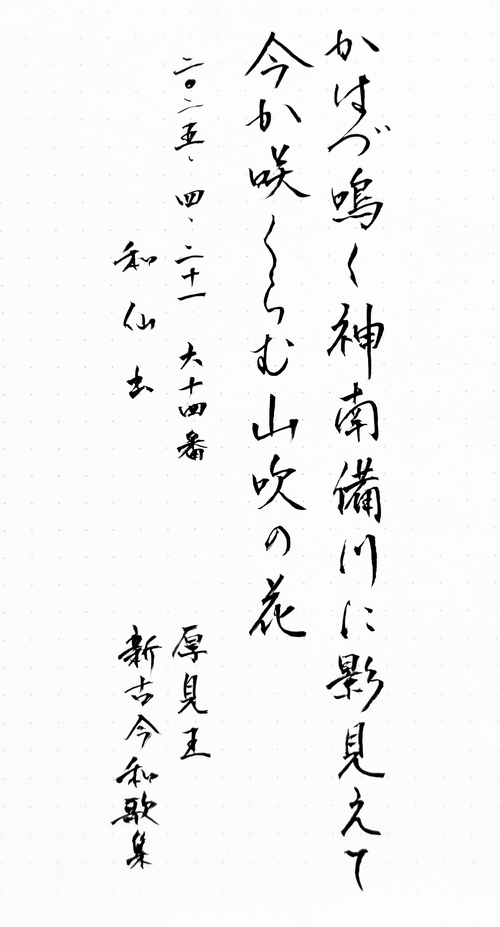 かはづ鳴く神南備川に影見えて
今か咲くらむ山吹の花
二〇二五、四、二十一 六十四番
厚見王
和仙書
新古今和歌集